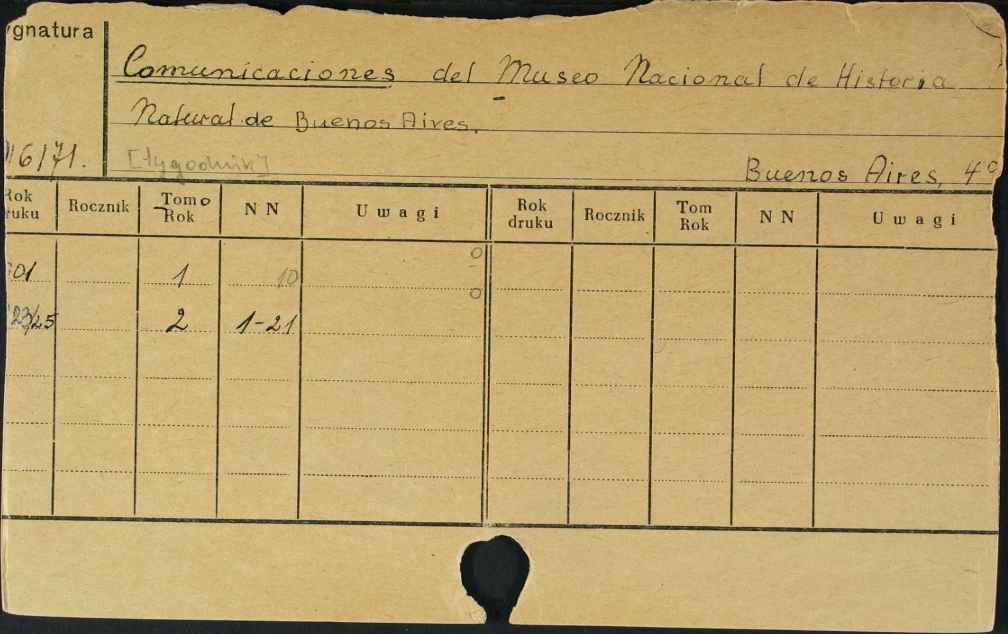 ygnatura
Comunicaciones del Museo Nacional de Historia
Natural de Buenos Aires.
6171. [tygodnik] Buenos Aires, 4°
Rok druku Rocznik Tomo Rok NN Uwagi Rok druku Rocznik Tom Rok NN Uwagi
01 1 10
23/25 2 1-21